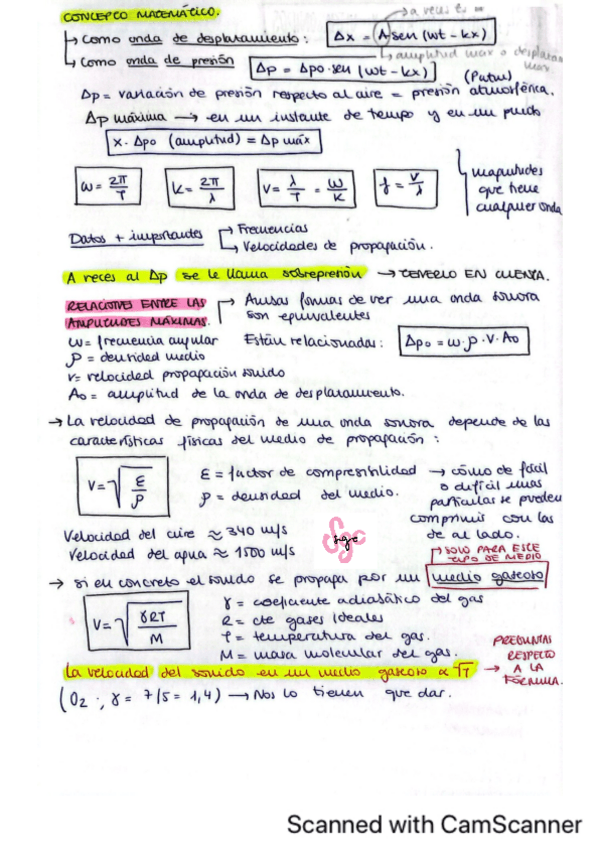 CONCEPTO MATEMÁTICO.
→ a veces es
↳ Como onda de desplazamiento: Δx = A sen (wt - kx)
→ amplitud max o desplazam max
↳ Como onda de presión Δp = Δpo · sen (wt - kx)
(Patm)
Δp = variación de presión respecto al aire = presión atmosférica.
Δp máxima → en un instante de tiempo y en un punto
x · Δpo (amplitud) = Δp máx
ω = 2π/T K = 2π/λ V = λ/T = ω/K f = V/λ
magnitudes
que tiene
cualquier onda
Datos + importantes → Frecuencias
↳ Velocidades de propagación.
A veces al Δp se le llama sobrepresión → TENERLO EN CUENTA.
RELACIONES ENTRE LAS AMPLITUDES MÁXIMAS. → Ambas formas de ver una onda sonora
son equivalentes
ω = frecuencia angular Están relacionadas: Δpo = ω · ρ · V · Ao
ρ = densidad medio
v = velocidad propagación sonido
Ao = amplitud de la onda de desplazamiento.
→ La velocidad de propagación de una onda sonora depende de las
características físicas del medio de propagación:
V = √(ε/ρ) ε = factor de compresibilidad → cómo de fácil
o difícil unas
ρ = densidad del medio. partículas se pueden
comprimir con las
de al lado.
Velocidad del aire ≈ 340 m/s
Velocidad del agua ≈ 1500 m/s
sge
SOLO PARA ESTE
TIPO DE MEDIO
→ si en concreto el sonido se propaga por un medio gaseoso
V = √(γRT/M) γ = coeficiente adiabático del gas
R = cte gases ideales
T = temperatura del gas.
M = masa molecular del gas.
La velocidad del sonido en un medio gaseoso α √T → PREGUNTAS
RESPECTO
A LA
FÓRMULA.
(O2 ·, γ = 7/5 = 1,4) → Nos lo tienen que dar.
Scanned with CamScanner